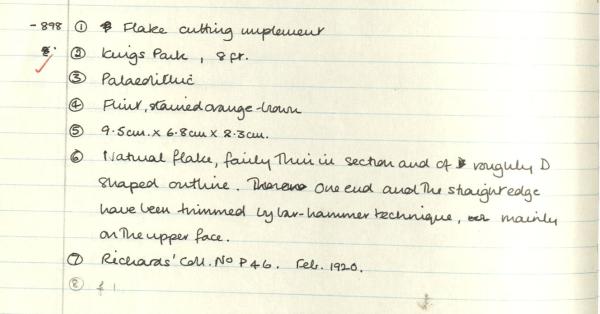 -898 ① Flake cutting implement
② Kings Park, 8ft.
③ Palaeolithic
④ Flint, stained orange-brown
⑤ 9.5cm. x 6.8cm x 2.3cm.
⑥ Natural flake, fairly thin in section and of roughly D
shaped outline. One end and the straight edge
have been trimmed by bar-hammer technique, mainly
on the upper face.
⑦ Richards' Coll. No P46. Feb. 1920.
⑧ £1